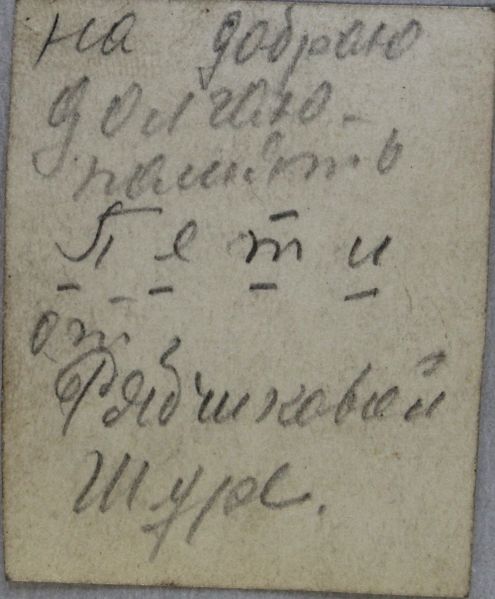 на добраю
долгаю
память
Пети
от
Рябчиковай
Шуре.